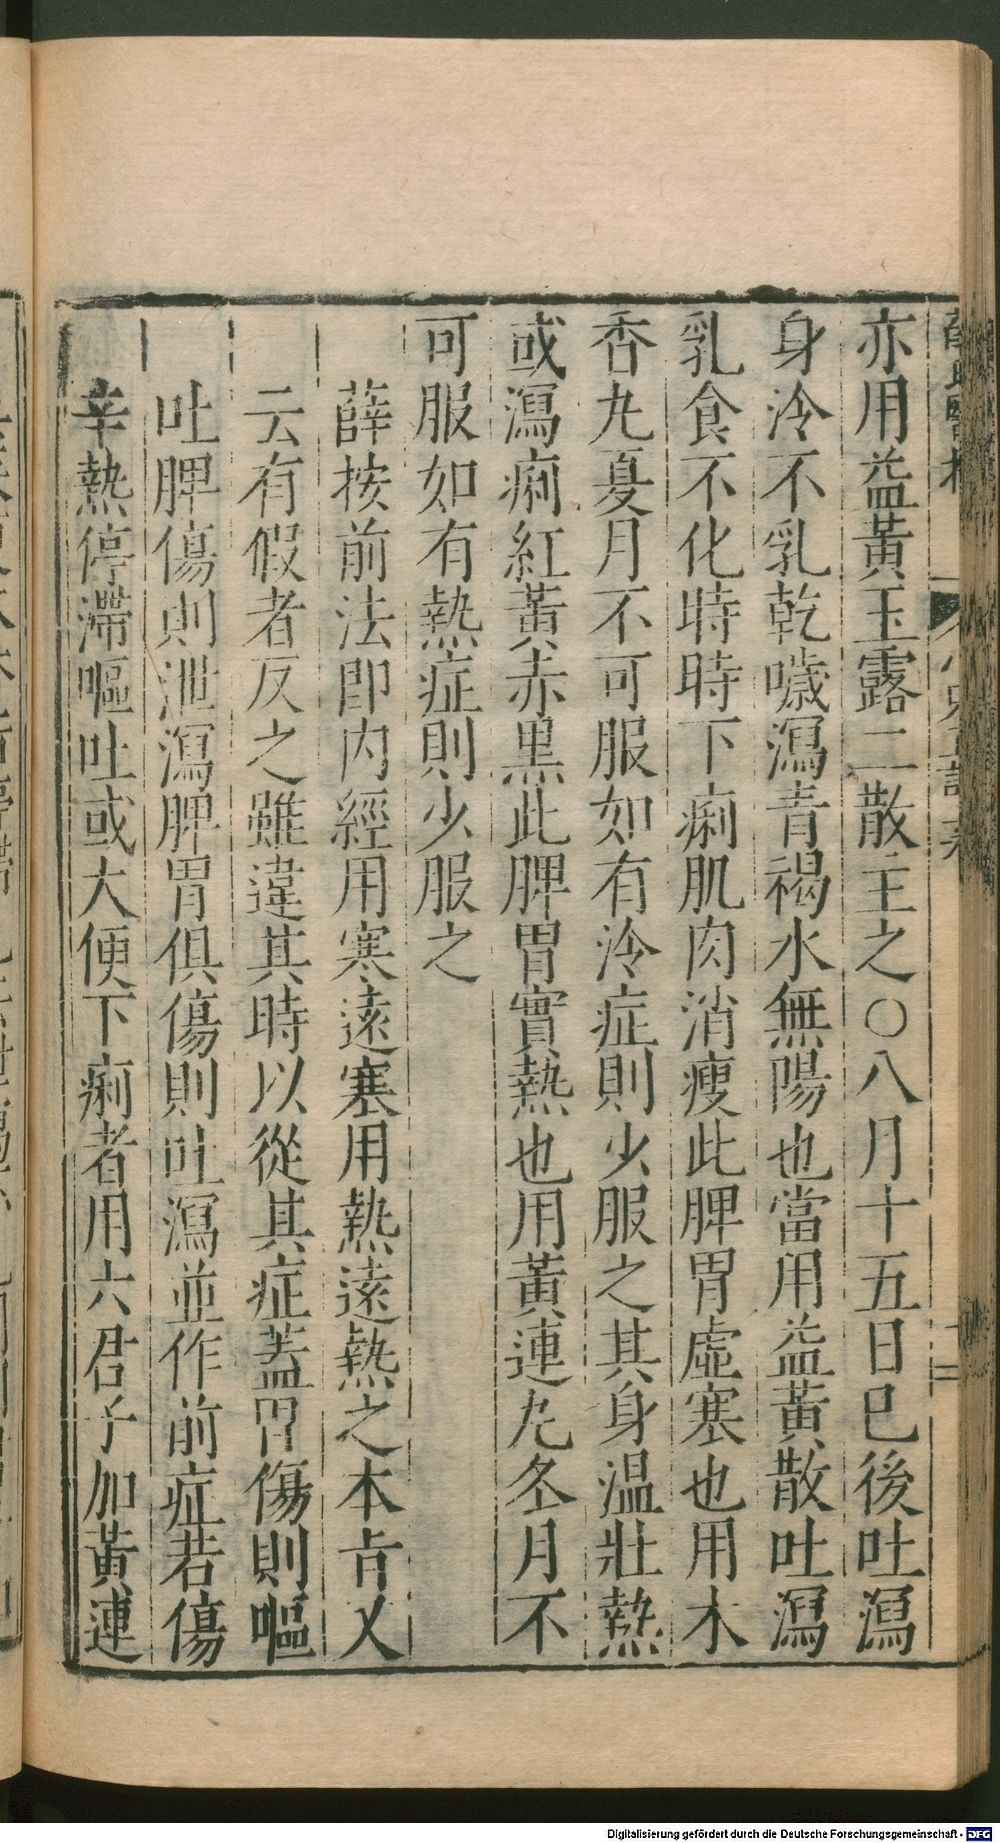 亦用益黃玉露二散主之○八月十五日已後吐瀉
身冷不乳乾噦瀉青褐水無陽也當用益黃散吐瀉
乳食不化時時下痢肌肉消瘦此脾胃虛寒也用木
香丸夏月不可服如有冷症則少服之其身温壯熱
或瀉痢紅黃赤黑此脾胃實熱也用黃連丸冬月不
可服如有熱症則少服之
薛按前法卽内經用寒遠寒用熱遠熱之本旨又
云有假者反之雖違其時以從其症蓋胃傷則嘔
吐脾傷則泄瀉脾胃俱傷則吐瀉並作前症若傷
辛熱停滯嘔吐或大便下痢者用六君子加黃連
Digitalisierung gefördert durch die Deutsche Forschungsgemeinschaft - DFG